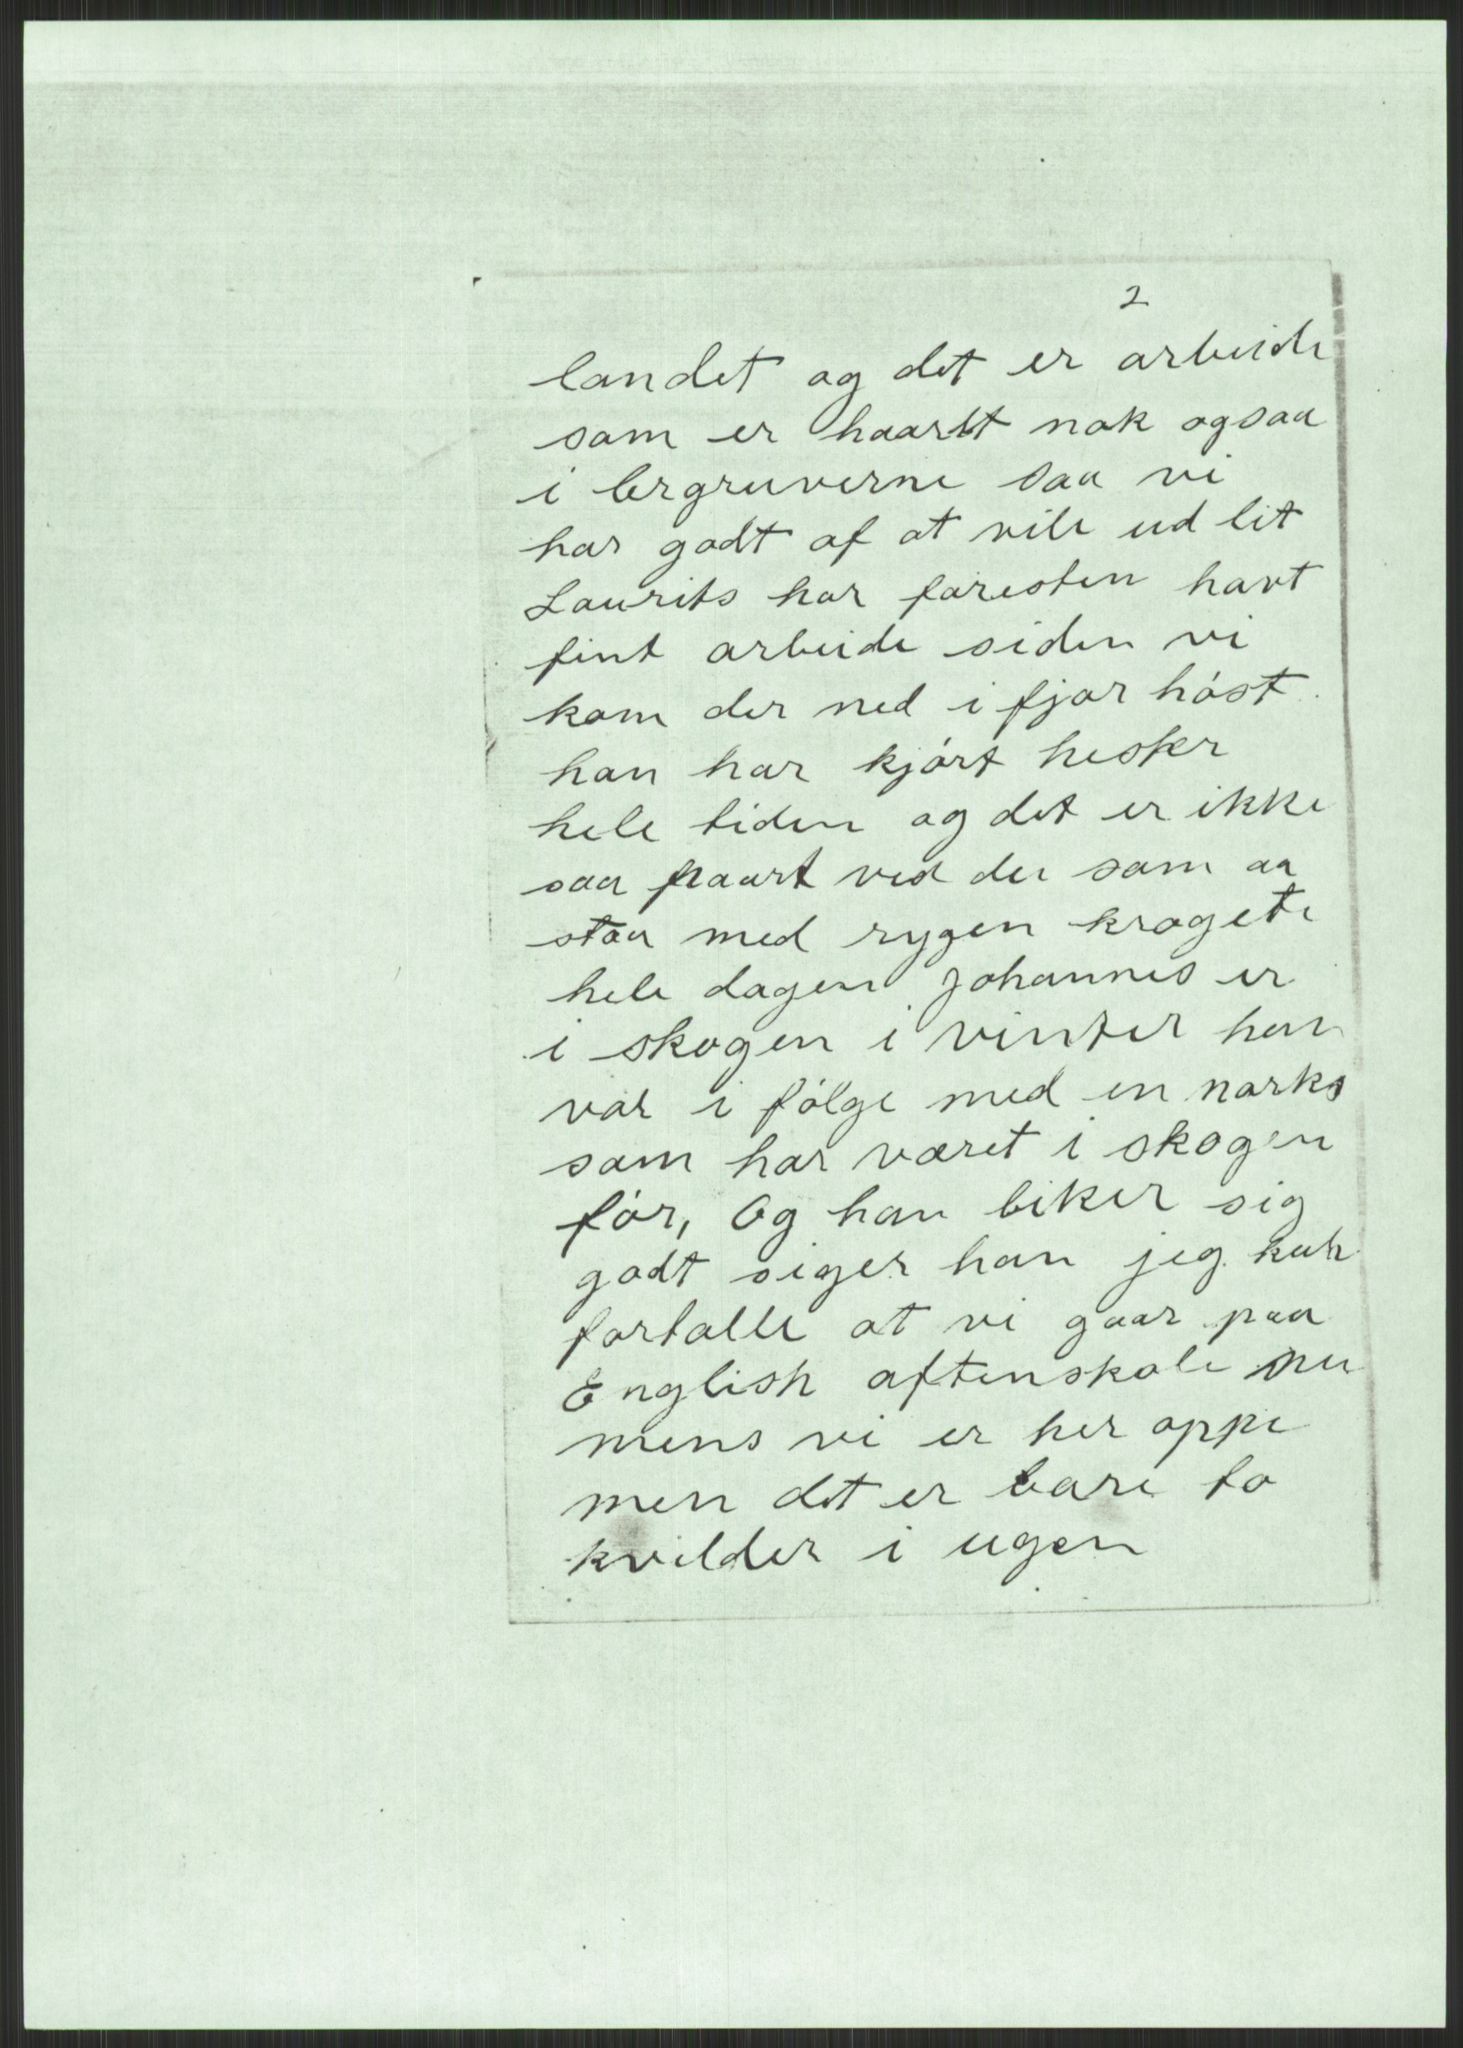 2
landet og det er arbeide
som er haardt nok ogsaa
i lergruverne saa vi
har godt af at vile ud lit
Laurits har foresten havt
fint arbeide siden vi
kom der ned i fjor høst
han har kjørt hesker
hele tiden og det er ikke
saa haart ved det som aa
staa med rygen krogete
hele dagen Johannes er
i skogen i vinter han
var i følge med en norks
som har været i skogen
før, Og han liker sig
godt siger han jeg kan
fortalle at vi gaar paa
English aftenskole nu
mens vi er her oppe
men det er bare to
kvilder i ugen